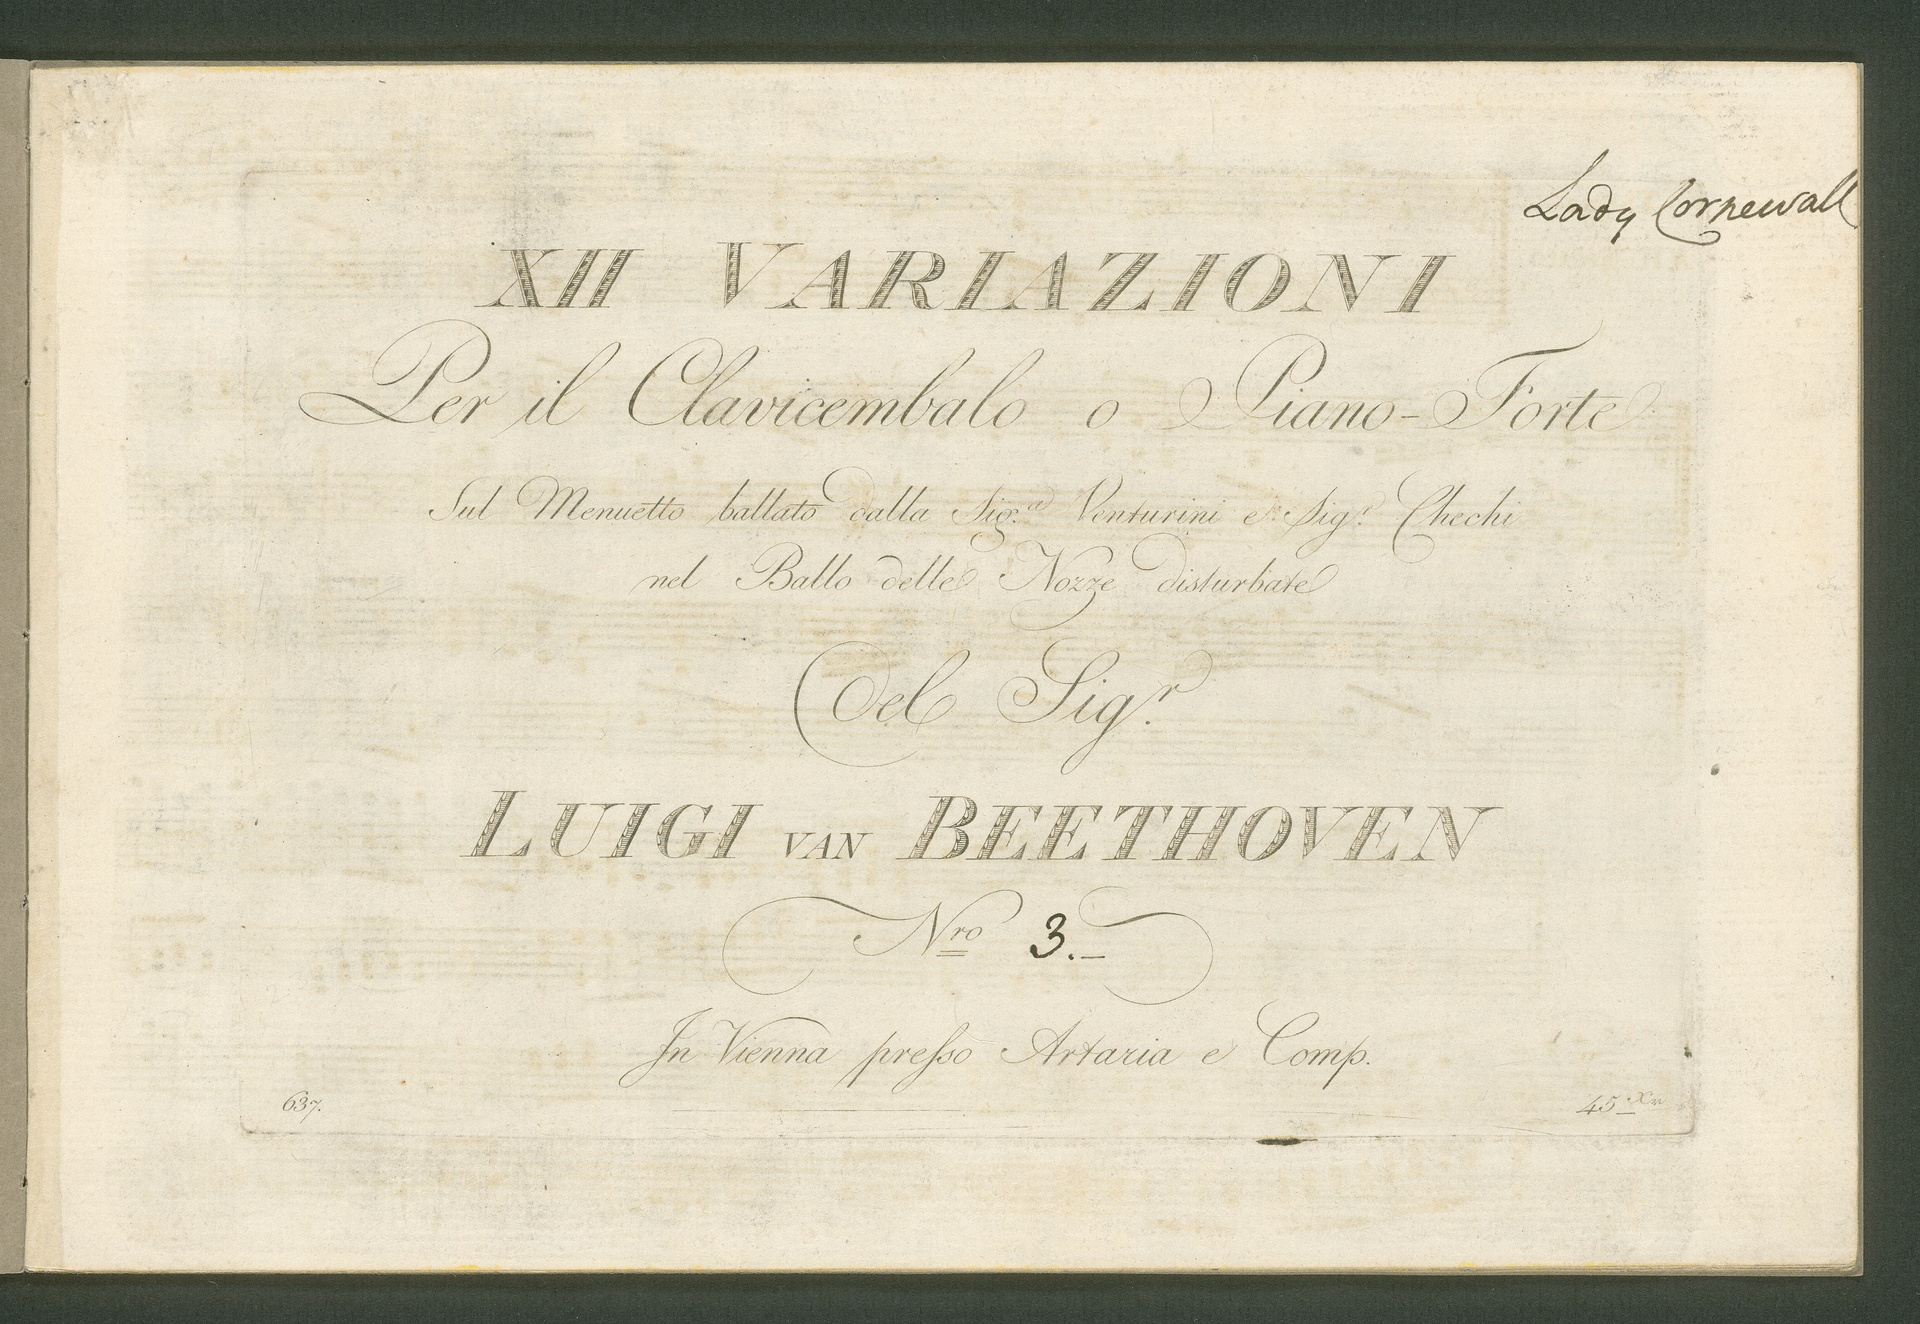 Lady Cornewall
XII VARIAZIONI
Per il Clavicembalo o Piano-Forte
Sul Menuetto ballato dalla Sig.ra Venturini e Sig.r Chechi
nel Ballo delle Nozze disturbate
Del Sig.r
LUIGI VAN BEETHOVEN
Nro 3.-
In Vienna presso Artaria e Comp.
637. 45.Xr